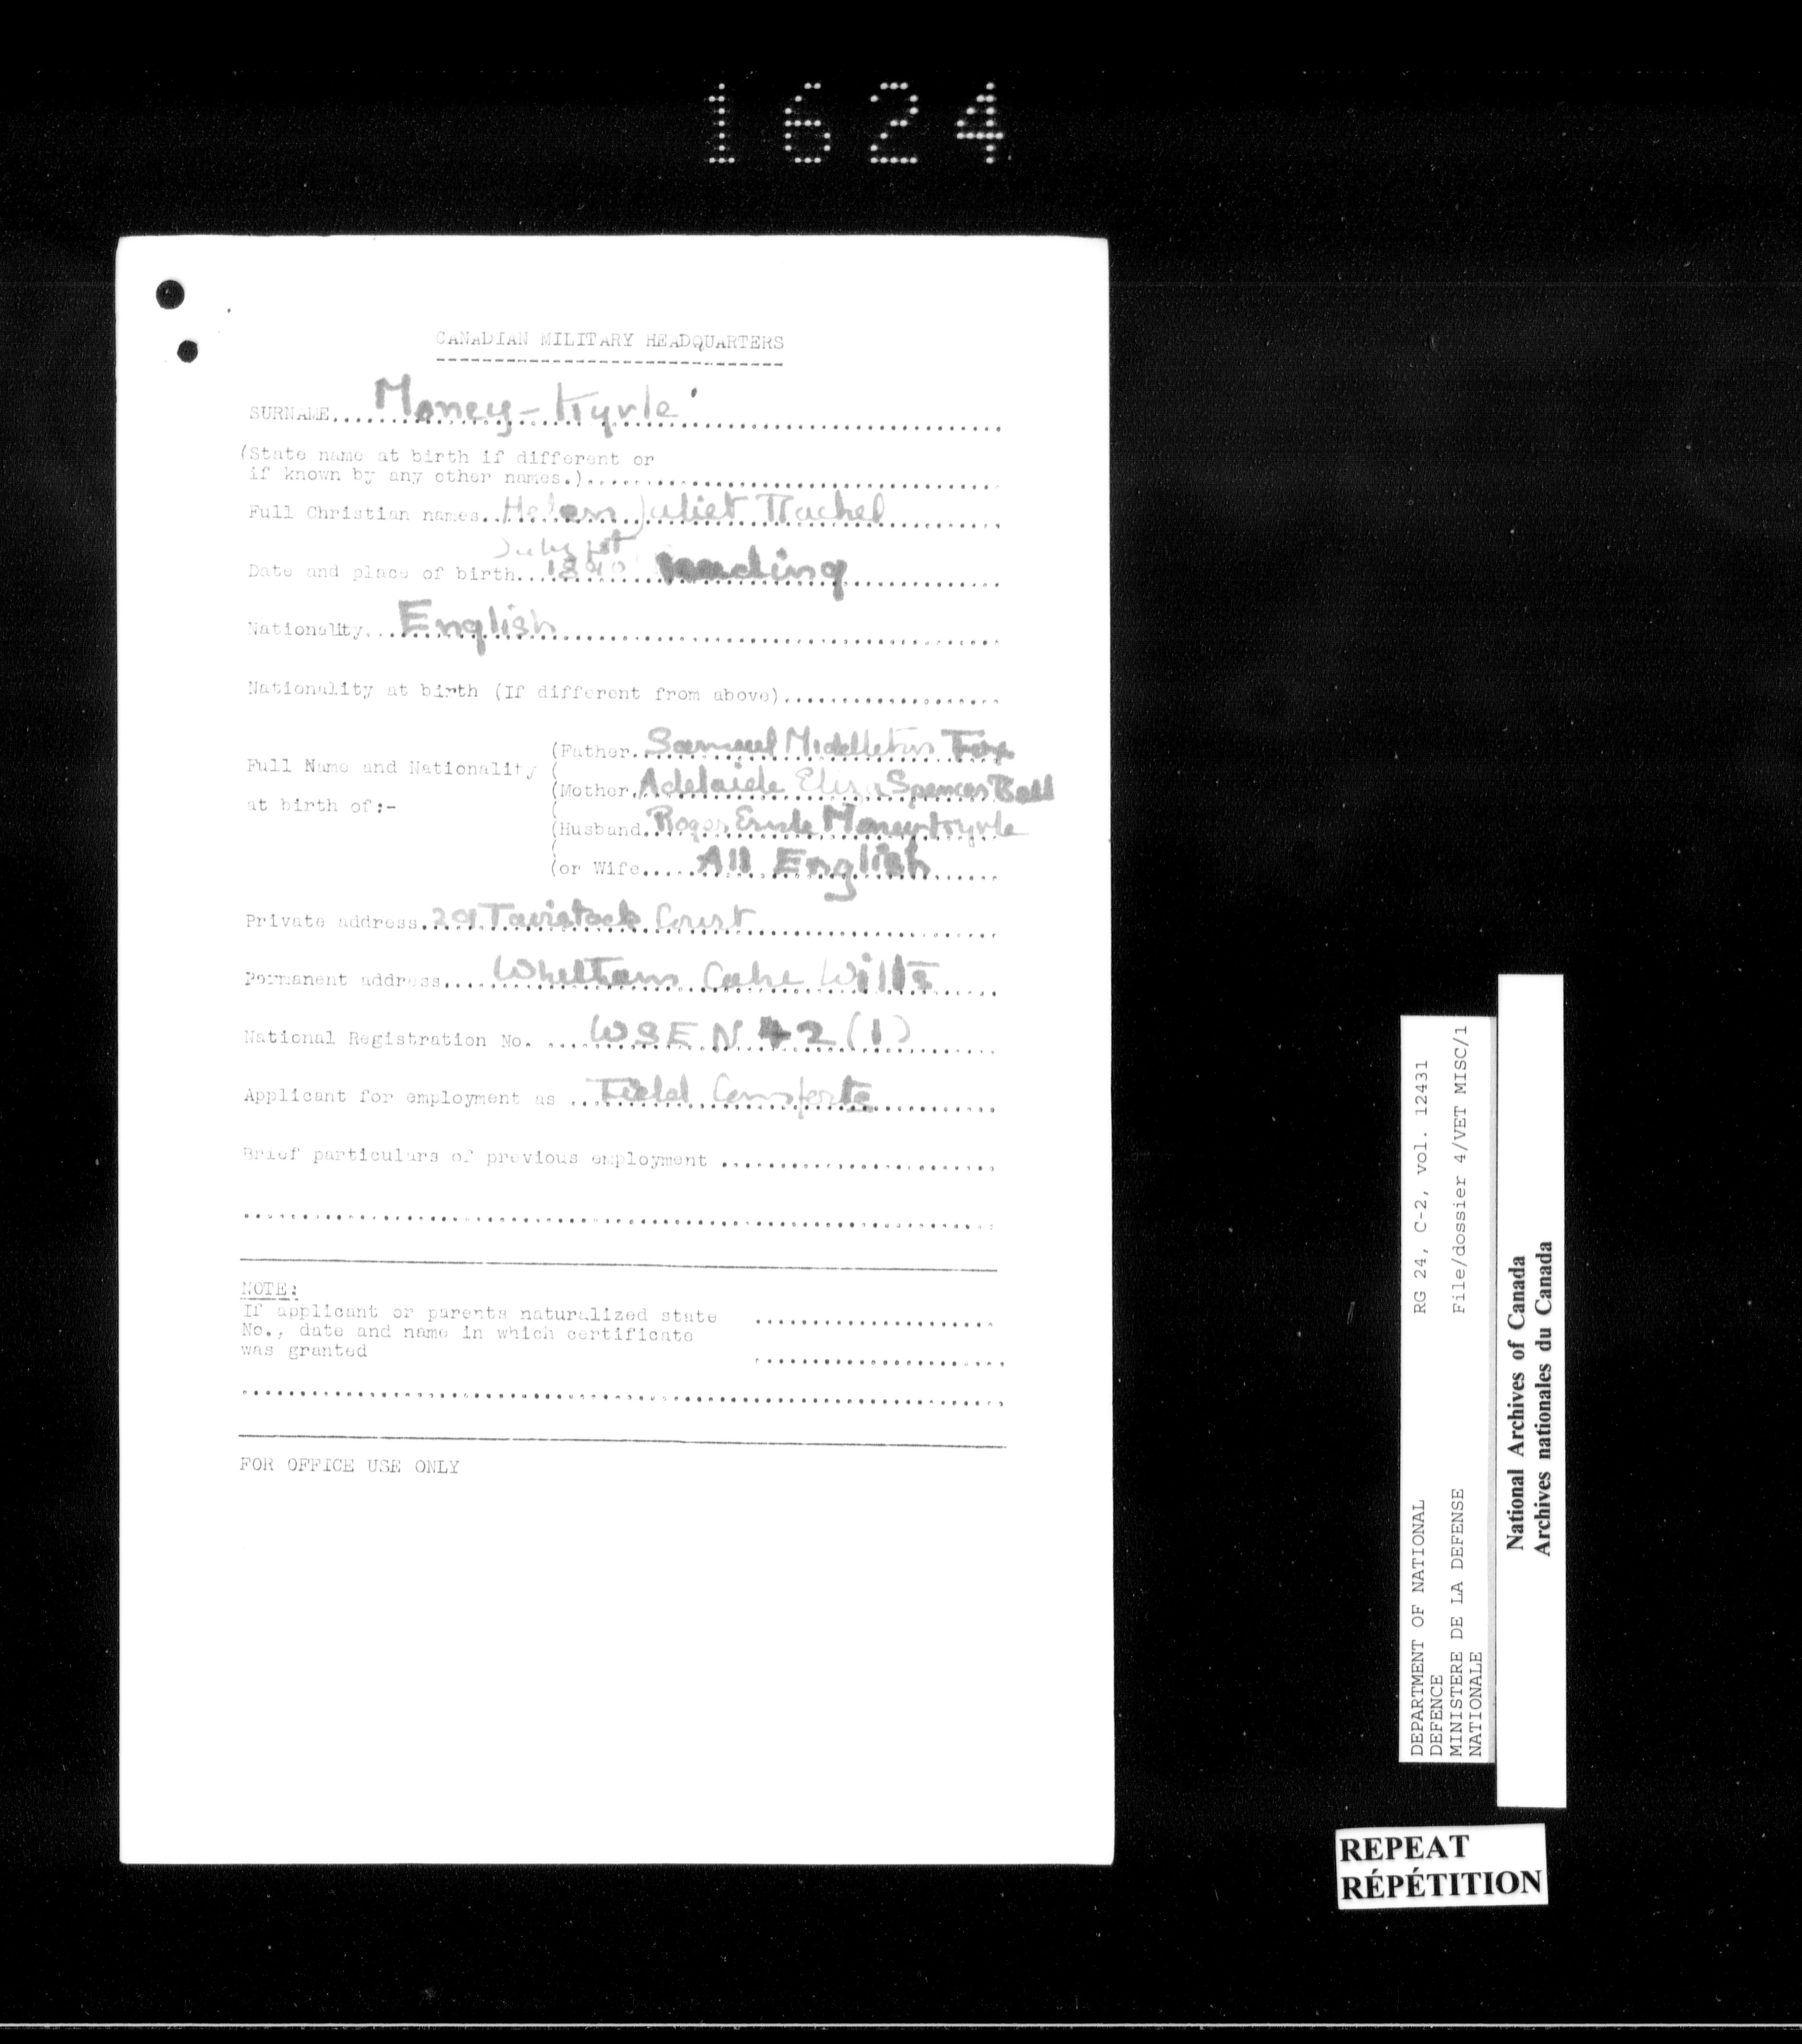 1624
CANADIAN MILITARY HEADQUARTERS
SURNAME Money-Kyrle
(State name at birth if different or
if known by any other names.)
Full Christian names. Helen Juliet Rachel
July 1st
Date and place of birth. 1890 Reading
Nationality English
Nationality at birth (If different from above)
(Father. Samuel Middleton Fox
Full Name and Nationality (
(Mother. Adelaide Eliza Spencer Bell
at birth of:- (
(Husband. Roger Ernle Money Kyrle
(
(or Wife All English
Private address 201 Tavistock Court
Permanent address Whetham Calne Wilts
National Registration No. WSEN 42 (1)
Applicant for employment as Field Comforts
Brief particulars of previous employment
NOTE:
If applicant or parents naturalized state
No., date and name in which certificate
was granted
FOR OFFICE USE ONLY
DEPARTMENT OF NATIONAL
DEFENCE
RG 24, C-2, vol. 12431
MINISTERE DE LA DEFENSE
NATIONALE
File/dossier 4/VET MISC/1
National Archives of Canada
Archives nationales du Canada
REPEAT
RÉPÉTITION